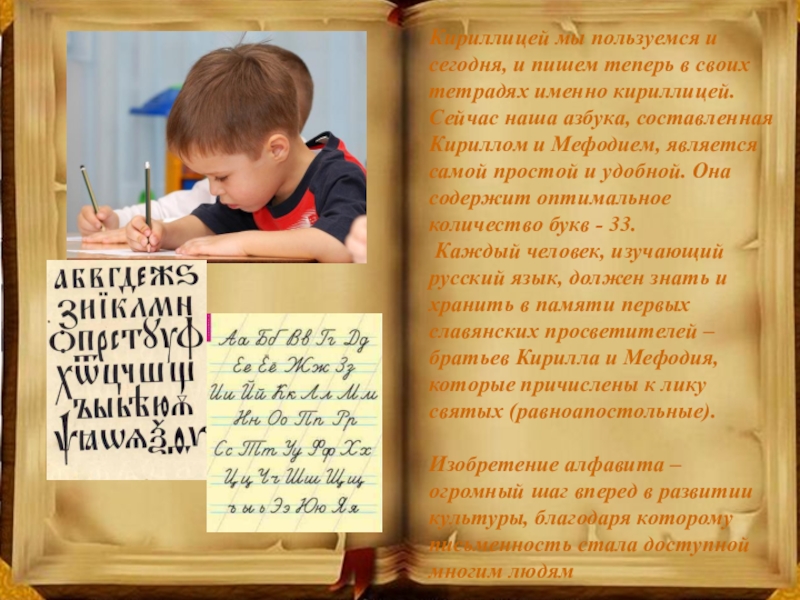 Кириллицей мы пользуемся и
сегодня, и пишем теперь в своих
тетрадях именно кириллицей.
Сейчас наша азбука, составленная
Кириллом и Мефодием, является
самой простой и удобной. Она
содержит оптимальное
количество букв - 33.
Каждый человек, изучающий
русский язык, должен знать и
хранить в памяти первых
славянских просветителей –
братьев Кирилла и Мефодия,
которые причислены к лику
святых (равноапостольные).
Изобретение алфавита –
огромный шаг вперед в развитии
культуры, благодаря которому
письменность стала доступной
многим людям
АБВГДЕЖЅ
ЗНЇКЛМН
ѺПРСТѸУФ
ХѾЦЧШЩ
ЪЫЬѢЮѪ
ѰЫѠѦѮ.Ѳ.Ѵ
Аа Бб Вв Гг Дд
Ее Ёё Жж Зз
Ии Йй Кк Лл Мм
Нн Оо Пп Рр
Сс Тт Уу Фф Хх
Цц Чч Шш Щщ
ъ ы ь Ээ Юю Яя